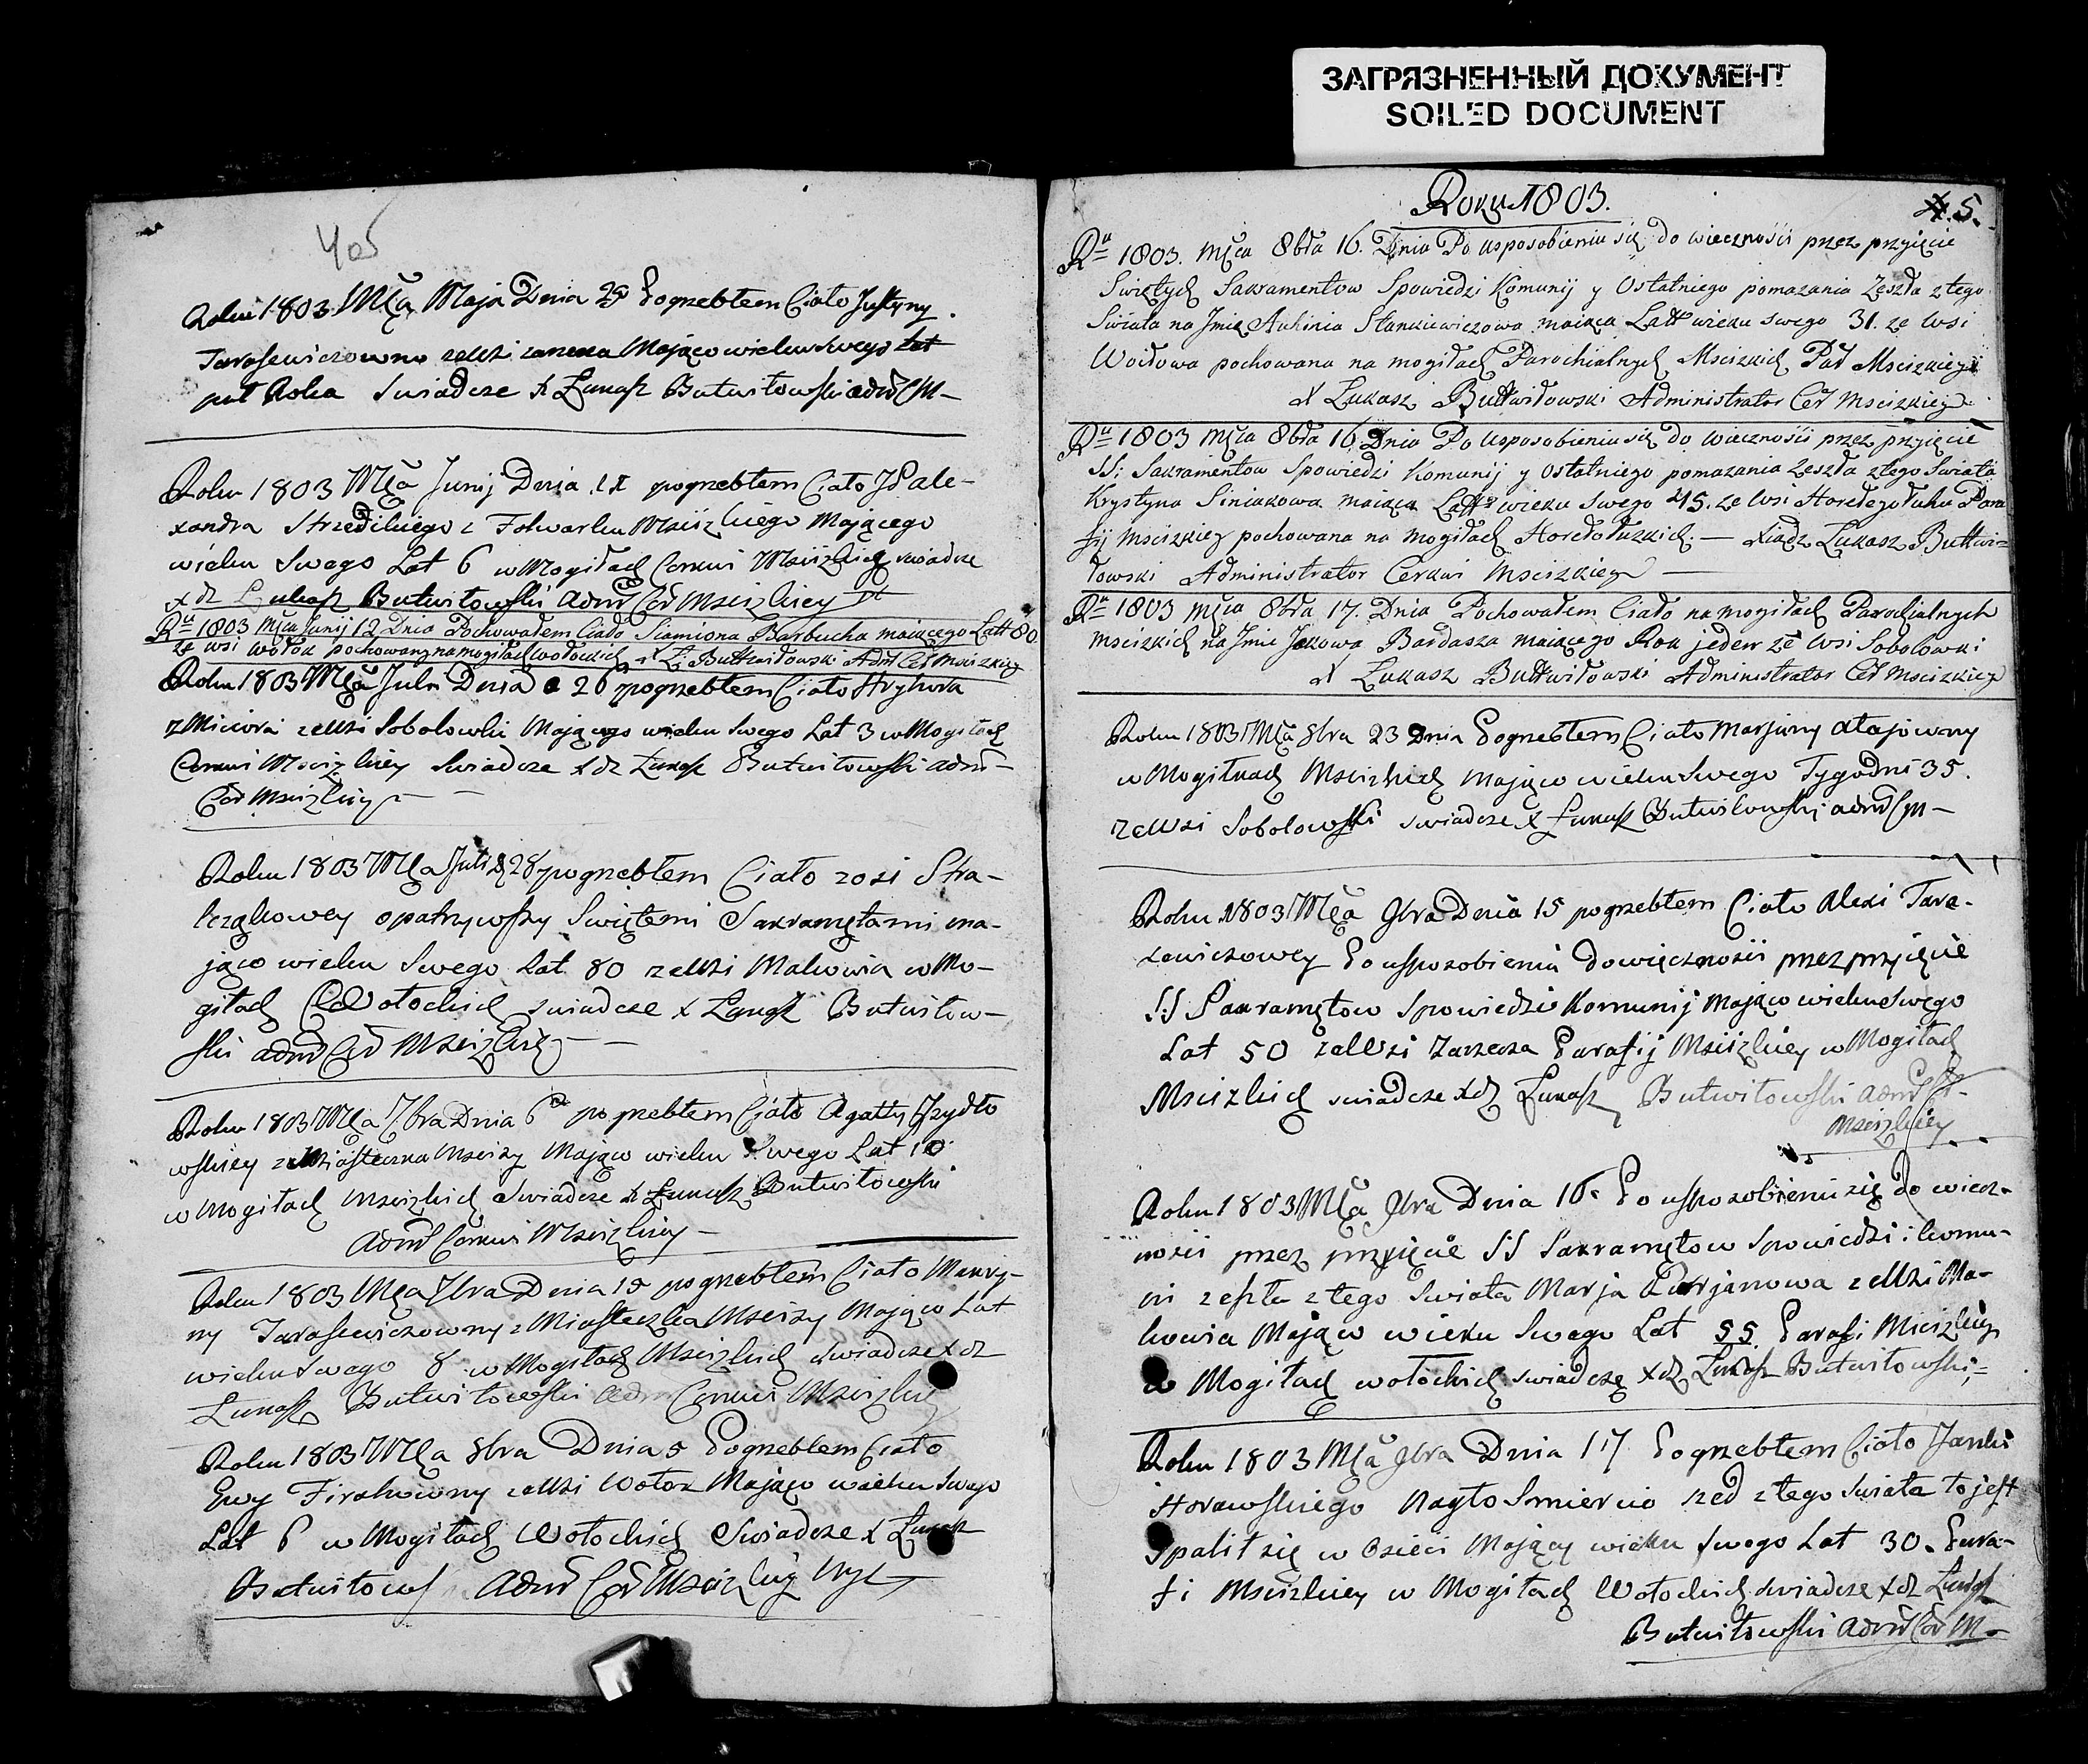 ЗАГРЯЗНЕННЫЙ ДОКУМЕНТ
SOILED DOCUMENT
405
Roku 1803 Mca Maja Dnia 29 Pogrzebłem Ciało Justyny
Tarasewiczowny zeWsi zarzecza Mająco wieku Swego Lat
puł Roka Swiadcze X Łukasz Butwiłowski adm CM
Roku 1803 Mca Junij Dnia pogrzebłem Ciało Ale-
xandra z Folwarku Mscizkiego Mającego
wieku Swego Lat 6 w Mogiłach Cerkwi Mscizkiey swiadcze
xdz Łukasz Butwiłowski adm Cer Mscizkiey
Ru 1803 Mca Junij 12 Dnia Pochowałem Ciało Siamiona Barbucha maiącego Latt 80
ze wsi Wołok pochowany na mogiłach wołockich X Ł. Buttwiłowski Adm Cer Mscizkiey
Roku 1803 Mca Julii Dnia 26 pogrzebłem Ciało Hryhora
zeWsi Sobolowki Mającego wieku Swego Lat 3 w Mogiłach
Cerkwi Mscizkiey Swiadcze xdz Łukasz Butwiłowski adm
Cer Mscizkiey
Roku 1803 Mca Julii 28 pogrzebłem Ciało zosi Stra-
opatrzywszy Swiętemi Sakramętami ma-
jąco wieku Swego Lat 80 zeWsi Makowia w Mo-
giłach Wołockich swiadcze x Łukasz Butwiłow-
ski adm Cer Mscizkiey
Roku 1803 Mca 7bra Dnia 6 pogrzebłem Ciało Agatty
wskiey z Miasteczka Mscizy Mająco wieku Swego Lat 10
w Mogiłach Mscizkich Swiadcze X Łukasz Butwiłowski
adm Cerkwi Mscizkiey
Roku 1803 Mca 7bra Dnia 15 pogrzebłem Ciało Mary-
ny Tarasewiczowny z Miasteczka Mscizy Mająco Lat
wieku Swego 8 w Mogiłach Mscizkich swiadcze xdz
Łukasz Butwiłowski adm Cerkwi Mscizkiey
Roku 1803 Mca 8bra Dnia 5 Pogrzebłem Ciało
Ewy zeWsi Wołok Mająco wieku Swego
Lat 6 w Mogiłach Wołockich Swiadcze x Łukasz
Butwiłows adm Cer Mscizkiey
Roku 1803.
5.
Ru 1803. Mca 8bra 16. Dnia Po usposobieniu się do wiecznosci przez przyięcie
Swiętych Sakramentow Spowiedzi Komunij y Ostatniego pomazania Zeszła z tego
Swiata na Jmie Auhinia Stankiewiczowa maiąca Latt wieku swego 31. ze Wsi
Woiłowa pochowana na mogiłach Parochialnych Mscizkich Par Mscizkiey
X Łukasz Buttwiłowski Administrator Cer Mscizkiey
Ru 1803 Mca 8bra 16 Dnia Po usposobieniu się do wiecznosci przez przyięcie
SS: Sakramentow Spowiedzi Komunij y Ostatniego pomazania Zeszła z tego Swiata
Krystyna Siniakowa maiąca Latt wieku swego 45. ze Wsi Horodegołuhu Para
fij Mscizkiey pochowana na mogiłach Xiądz Łukasz Buttwi=
łowski Administrator Cerkwi Mscizkiey
Ru 1803 Mca 8bra 17. Dnia Pochowałem Ciało na mogiłach Parochialnych
Mscizkich na Jmie Jakowa Bardasza maiącego Rok jeden ze Wsi Sobolowki
X Łukasz Buttwiłowski Administrator Cer Mscizkiey
Roku 1803 Mca 8bra 23 Dnia Pogrzebłem Ciało Marjany
w Mogiłkach Mscizkich Mająco wieku Swego Tygodni 35.
zeWsi Sobolowski swiadcze X Łukasz Butwiłowski adm CM
Roku 1803 Mca 9bra Dnia 15 pogrzebłem Ciało Alexi Tara-
sewiczowey Po usposobieniu do więcznosii przez przyięcie
SS Sakramętow Spowiedzi Komunij Mająco wieku Swego
Lat 50 zeWsi Zarzecza Parafij Mscizkiey w Mogiłach
Mscizkich swiadcze xdz Łukasz Butwiłowski adm Cer
Mscizkiey
Roku 1803 Mca 9bra Dnia 16 Po usposobieniu się do wiecz-
nosci przez przyięcie SS Sakramętow Spowiedzi i komu-
ni zeszła z tego Swiata Marja zeWsi Ma-
kowia Mająco wieku Swego Lat 55 Parafi Mscizkiey
w Mogiłach wołockich swiadczę xdz Łukasz Butwiłowski
Roku 1803 Mca 9bra Dnia 17 Pogrzebłem Ciało Janki
Horawskiego Nagło Smiercio szed z tego swiata to jest
Spalił się w Osieci Mający wieku Swego Lat 30. Para-
fi Mscizkiey w Mogiłach Wołockich swiadcze xdz Łukasz
Butwiłowski adm Cer M